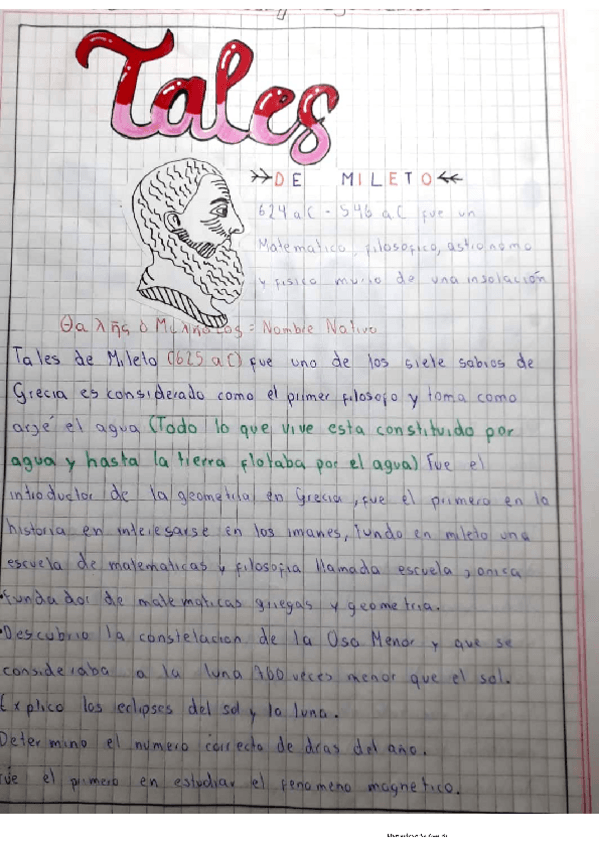 Tales
DE MILETO
624 aC - 546 aC fue un
Matematico, filosofico, astronomo
y fisico murio de una insolación
Θαλῆς ὁ Μιλήσιος = Nombre Nativo
Tales de Mileto (625 aC) fue uno de los siete sabios de
Grecia es considerado como el primer filosofo y toma como
arjé el agua (Todo lo que vive esta constituido por
agua y hasta la tierra flotaba por el agua) Fue el
introductor de la geometria en Grecia, fue el primero en la
historia en interesarse en los imanes, fundo en mileto una
escuela de matematicas y filosofia llamada escuela jonica
•Fundador de matematicas griegas y geometria.
•Descubrio la constelacion de la Osa Menor y que se
consideraba a la luna 700 veces menor que el sol.
Explico los eclipses del sol y la luna.
Determino el numero correcto de dias del año.
Fue el primero en estudiar el fenomeno magnetico.